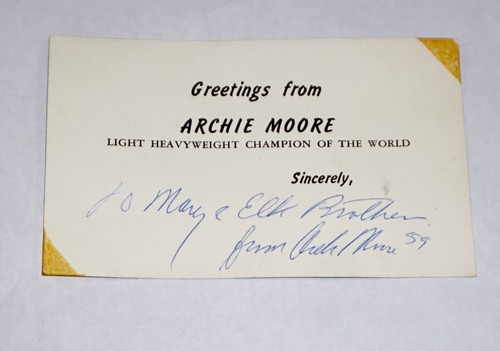 Greetings from
ARCHIE MOORE
LIGHT HEAVYWEIGHT CHAMPION OF THE WORLD
Sincerely,
To Mary & Elk Brother
from Archie Moore '59